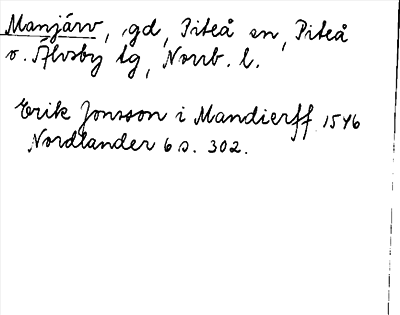 Manjärv, gd, Piteå sn, Piteå
o. Älvsby tg, Norrb. l.
Erik Jonsson i Mandierff 1546
Nordlander 6 s. 302.